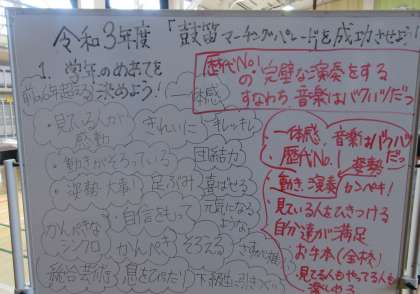 令和3年度 「鼓笛マーチングパレードを成功させよう!」
1. 学年のめあてを
決めよう!
歴代No.1
の完璧な演奏をする
すなわち 音楽はバクハツだっ
前の6年超える
一体感
・見ている人が
感動
きれいに
キレッキレ
・動きがそろっている
団結力
・姿勢 大事!
足ぶみ
喜ばせる
かんぺきな
シンクロ
・自信をもって
元気になる
ような
かんぺき
そろえる
統合芸術
息をぴったり
・一体感、音楽はバクハツ
だっ
・歴代No.1
姿勢
動き、演奏 カンペキ!
・見ている人をひきつける
自分達が満足
・お手本(全校)
・見てる人もやってる人も
楽しめる